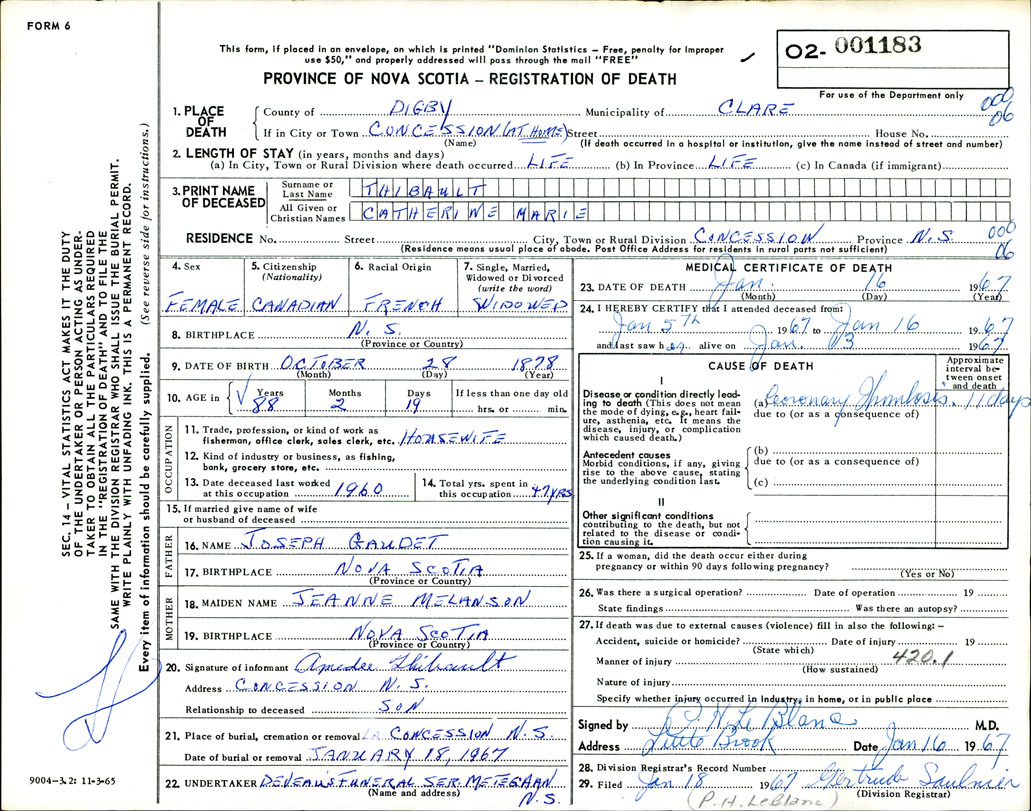 FORM 6
This form, if placed in an envelope, on which is printed "Dominion Statistics – Free, penalty for improper
use $50," and properly addressed will pass through the mail "FREE"
PROVINCE OF NOVA SCOTIA – REGISTRATION OF DEATH
02- 001183
For use of the Department only
000
06
1. PLACE OF DEATH
County of DIGBY Municipality of CLARE
If in City or Town CONCESSION (AT HOME) Street House No.
(Name) (If death occurred in a hospital or institution, give the name instead of street and number)
2. LENGTH OF STAY (in years, months and days)
(a) In City, Town or Rural Division where death occurred LIFE (b) In Province LIFE (c) In Canada (if immigrant)
3. PRINT NAME OF DECEASED
Surname or Last Name THIBAULT
All Given or Christian Names CATHERINE MARIE
RESIDENCE No. Street City, Town or Rural Division CONCESSION Province N.S. 000
(Residence means usual place of abode. Post Office Address for residents in rural parts not sufficient) 06
4. Sex
FEMALE
5. Citizenship
(Nationality)
CANADIAN
6. Racial Origin
FRENCH
7. Single, Married,
Widowed or Divorced
(write the word)
WIDOWED
8. BIRTHPLACE N.S.
(Province or Country)
9. DATE OF BIRTH OCTOBER 28 1878
(Month) (Day) (Year)
10. AGE in
Years Months Days If less than one day old
88 2 19 hrs. or min.
OCCUPATION
11. Trade, profession, or kind of work as
fisherman, office clerk, sales clerk, etc. HOUSEWIFE
12. Kind of industry or business, as fishing,
bank, grocery store, etc.
13. Date deceased last worked
at this occupation 1960
14. Total yrs. spent in
this occupation 47 YRS
15. If married give name of wife
or husband of deceased
FATHER
16. NAME JOSEPH GAUDET
17. BIRTHPLACE NOVA SCOTIA
(Province or Country)
MOTHER
18. MAIDEN NAME JEANNE MELANSON
19. BIRTHPLACE NOVA SCOTIA
(Province or Country)
20. Signature of informant Amedee Thibault
Address CONCESSION N.S.
Relationship to deceased SON
21. Place of burial, cremation or removal CONCESSION N.S.
Date of burial or removal JANUARY 18, 1967
22. UNDERTAKER DEVEAU'S FUNERAL SER. METEGHAN
(Name and address) N.S.
MEDICAL CERTIFICATE OF DEATH
23. DATE OF DEATH Jan. 16 1967
(Month) (Day) (Year)
24. I HEREBY CERTIFY that I attended deceased from:
Jan 5th 1967 to Jan 16 1967
and last saw her alive on Jan. 13 1967
CAUSE OF DEATH
Approximate
interval be-
tween onset
and death
I
Disease or condition directly lead-
ing to death (This does not mean
the mode of dying, e.g., heart fail-
ure, asthenia, etc. It means the
disease, injury, or complication
which caused death.)
(a) Coronary Thrombosis. 11 days
due to (or as a consequence of)
Antecedent causes
Morbid conditions, if any, giving
rise to the above cause, stating
the underlying condition last.
(b)
due to (or as a consequence of)
(c)
II
Other significant conditions
contributing to the death, but not
related to the disease or condi-
tion causing it.
25. If a woman, did the death occur either during
pregnancy or within 90 days following pregnancy?
(Yes or No)
26. Was there a surgical operation? Date of operation 19
State findings Was there an autopsy?
27. If death was due to external causes (violence) fill in also the following: –
Accident, suicide or homicide? Date of injury 19
(State which)
Manner of injury 420.1
(How sustained)
Nature of injury
Specify whether injury occurred in industry, in home, or in public place
Signed by P. H. LeBlanc M.D.
Address Little Brook Date Jan 16 1967
28. Division Registrar's Record Number
29. Filed Jan 18 1967 Gertrude Saulnier
(P. H. LeBlanc) (Division Registrar)
SEC. 14 – VITAL STATISTICS ACT MAKES IT THE DUTY
OF THE UNDERTAKER OR PERSON ACTING AS UNDER-
TAKER TO OBTAIN ALL THE PARTICULARS REQUIRED
IN THE "REGISTRATION OF DEATH" AND TO FILE THE
SAME WITH THE DIVISION REGISTRAR WHO SHALL ISSUE THE BURIAL PERMIT.
WRITE PLAINLY WITH UNFADING INK. THIS IS A PERMANENT RECORD.
Every item of information should be carefully supplied. (See reverse side for instructions.)
9004-3.2: 11-3-65